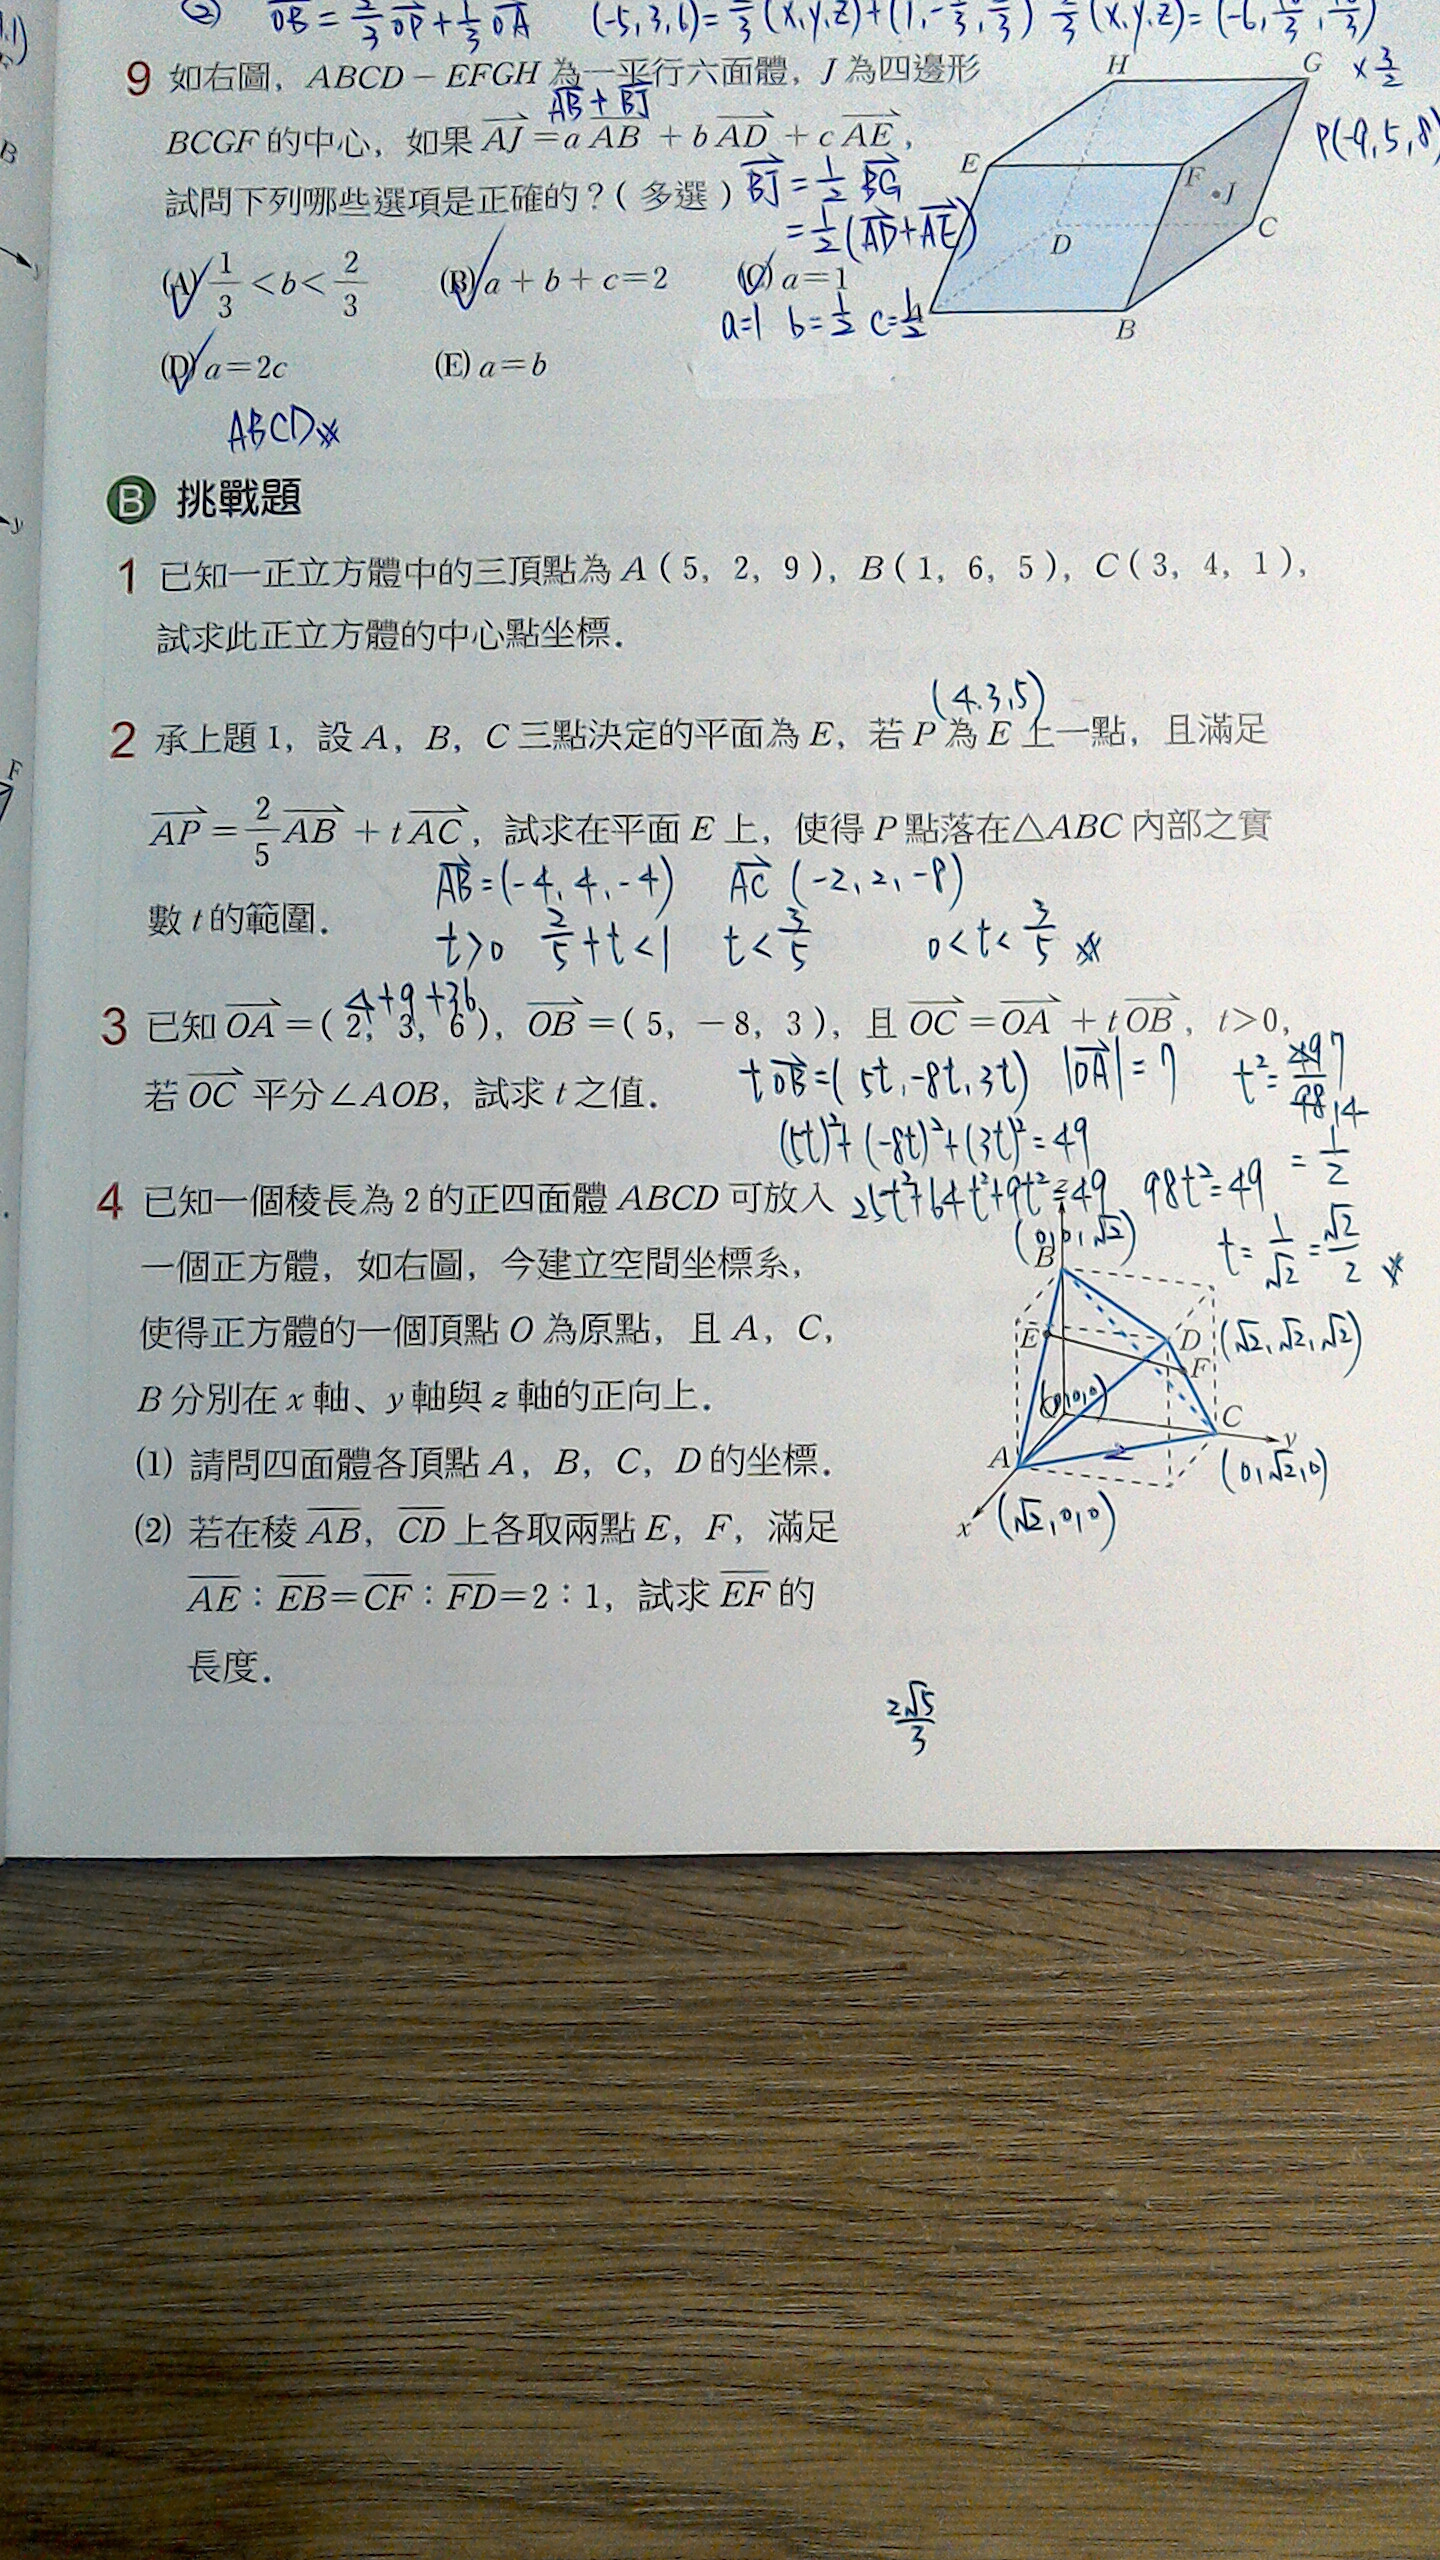 ② OB = 2/3 OP + 1/3 OA (-5,3,6) = 2/3 (x,y,z) + (1, -
(x,y,z) = (-6,
9 如右圖，ABCD－EFGH 為一平行六面體，J 為四邊形
AB + BJ
BCGF 的中心，如果 AJ = a AB + b AD + c AE，
試問下列哪些選項是正確的？（多選）
BJ = 1/2 BG
= 1/2 (AD + AE)
(A) 1/3 < b < 2/3 (B) a + b + c = 2 (C) a = 1
a=1 b=1/2 c=1/2
(D) a = 2c (E) a = b
ABCD
H G E F J D C A B
× 3/2
P(-9, 5, 8)
B 挑戰題
1 已知一正立方體中的三頂點為 A（5，2，9），B（1，6，5），C（3，4，1），
試求此正立方體的中心點坐標．
(4.3,5)
2 承上題 1，設 A，B，C 三點決定的平面為 E，若 P 為 E 上一點，且滿足
AP = 2/5 AB + t AC，試求在平面 E 上，使得 P 點落在△ABC 內部之實
數 t 的範圍．
AB = (-4, 4, -4) AC (-2, 2, -8)
t>0 2/5 + t < 1 t < 3/5 0 < t < 3/5
4+9+36
3 已知 OA =（2，3，6），OB =（5，－8，3），且 OC = OA + t OB，t > 0，
若 OC 平分∠AOB，試求 t 之值．
tOB = (5t, -8t, 3t) |OA| = 7 t² = 49/98
(5t)² + (-8t)² + (3t)² = 49
= 1/2
25t² + 64t² + 9t² = 49 98t² = 49
t = 1/√2 = √2/2
4 已知一個稜長為 2 的正四面體 ABCD 可放入
一個正方體，如右圖，今建立空間坐標系，
使得正方體的一個頂點 O 為原點，且 A，C，
B 分別在 x 軸、y 軸與 z 軸的正向上．
(1) 請問四面體各頂點 A，B，C，D 的坐標．
(2) 若在稜 AB，CD 上各取兩點 E，F，滿足
AE：EB = CF：FD = 2：1，試求 EF 的
長度．
z
(0,0,√2)
B
E D F
(√2, √2, √2)
(0,0,0)
A C y
2
(0, √2, 0)
x (√2, 0, 0)
2√5/3